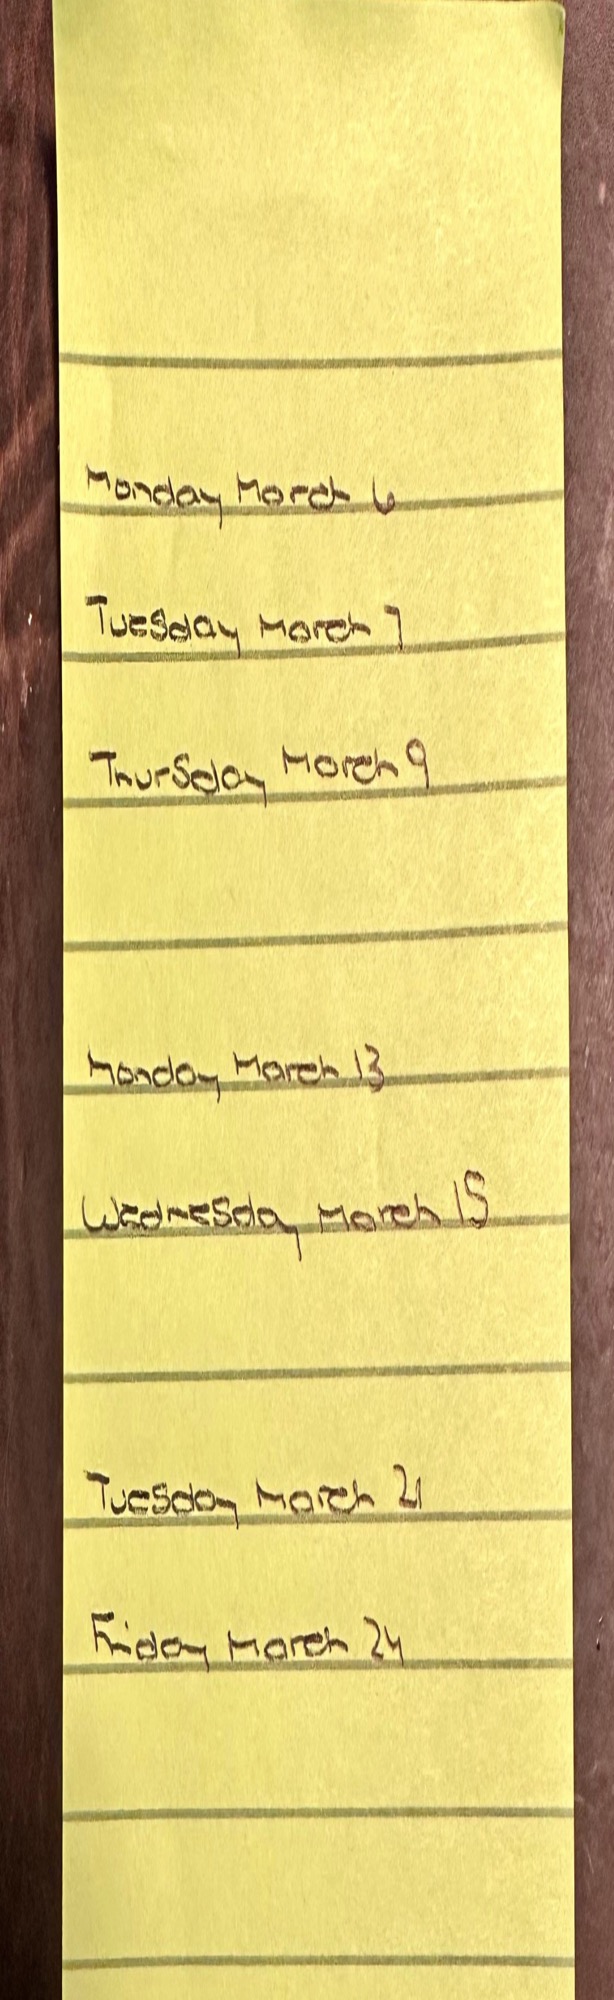 Monday March 6
Tuesday March 7
Thursday March 9
Monday March 13
Wednesday March 15
Tuesday March 21
Friday March 24